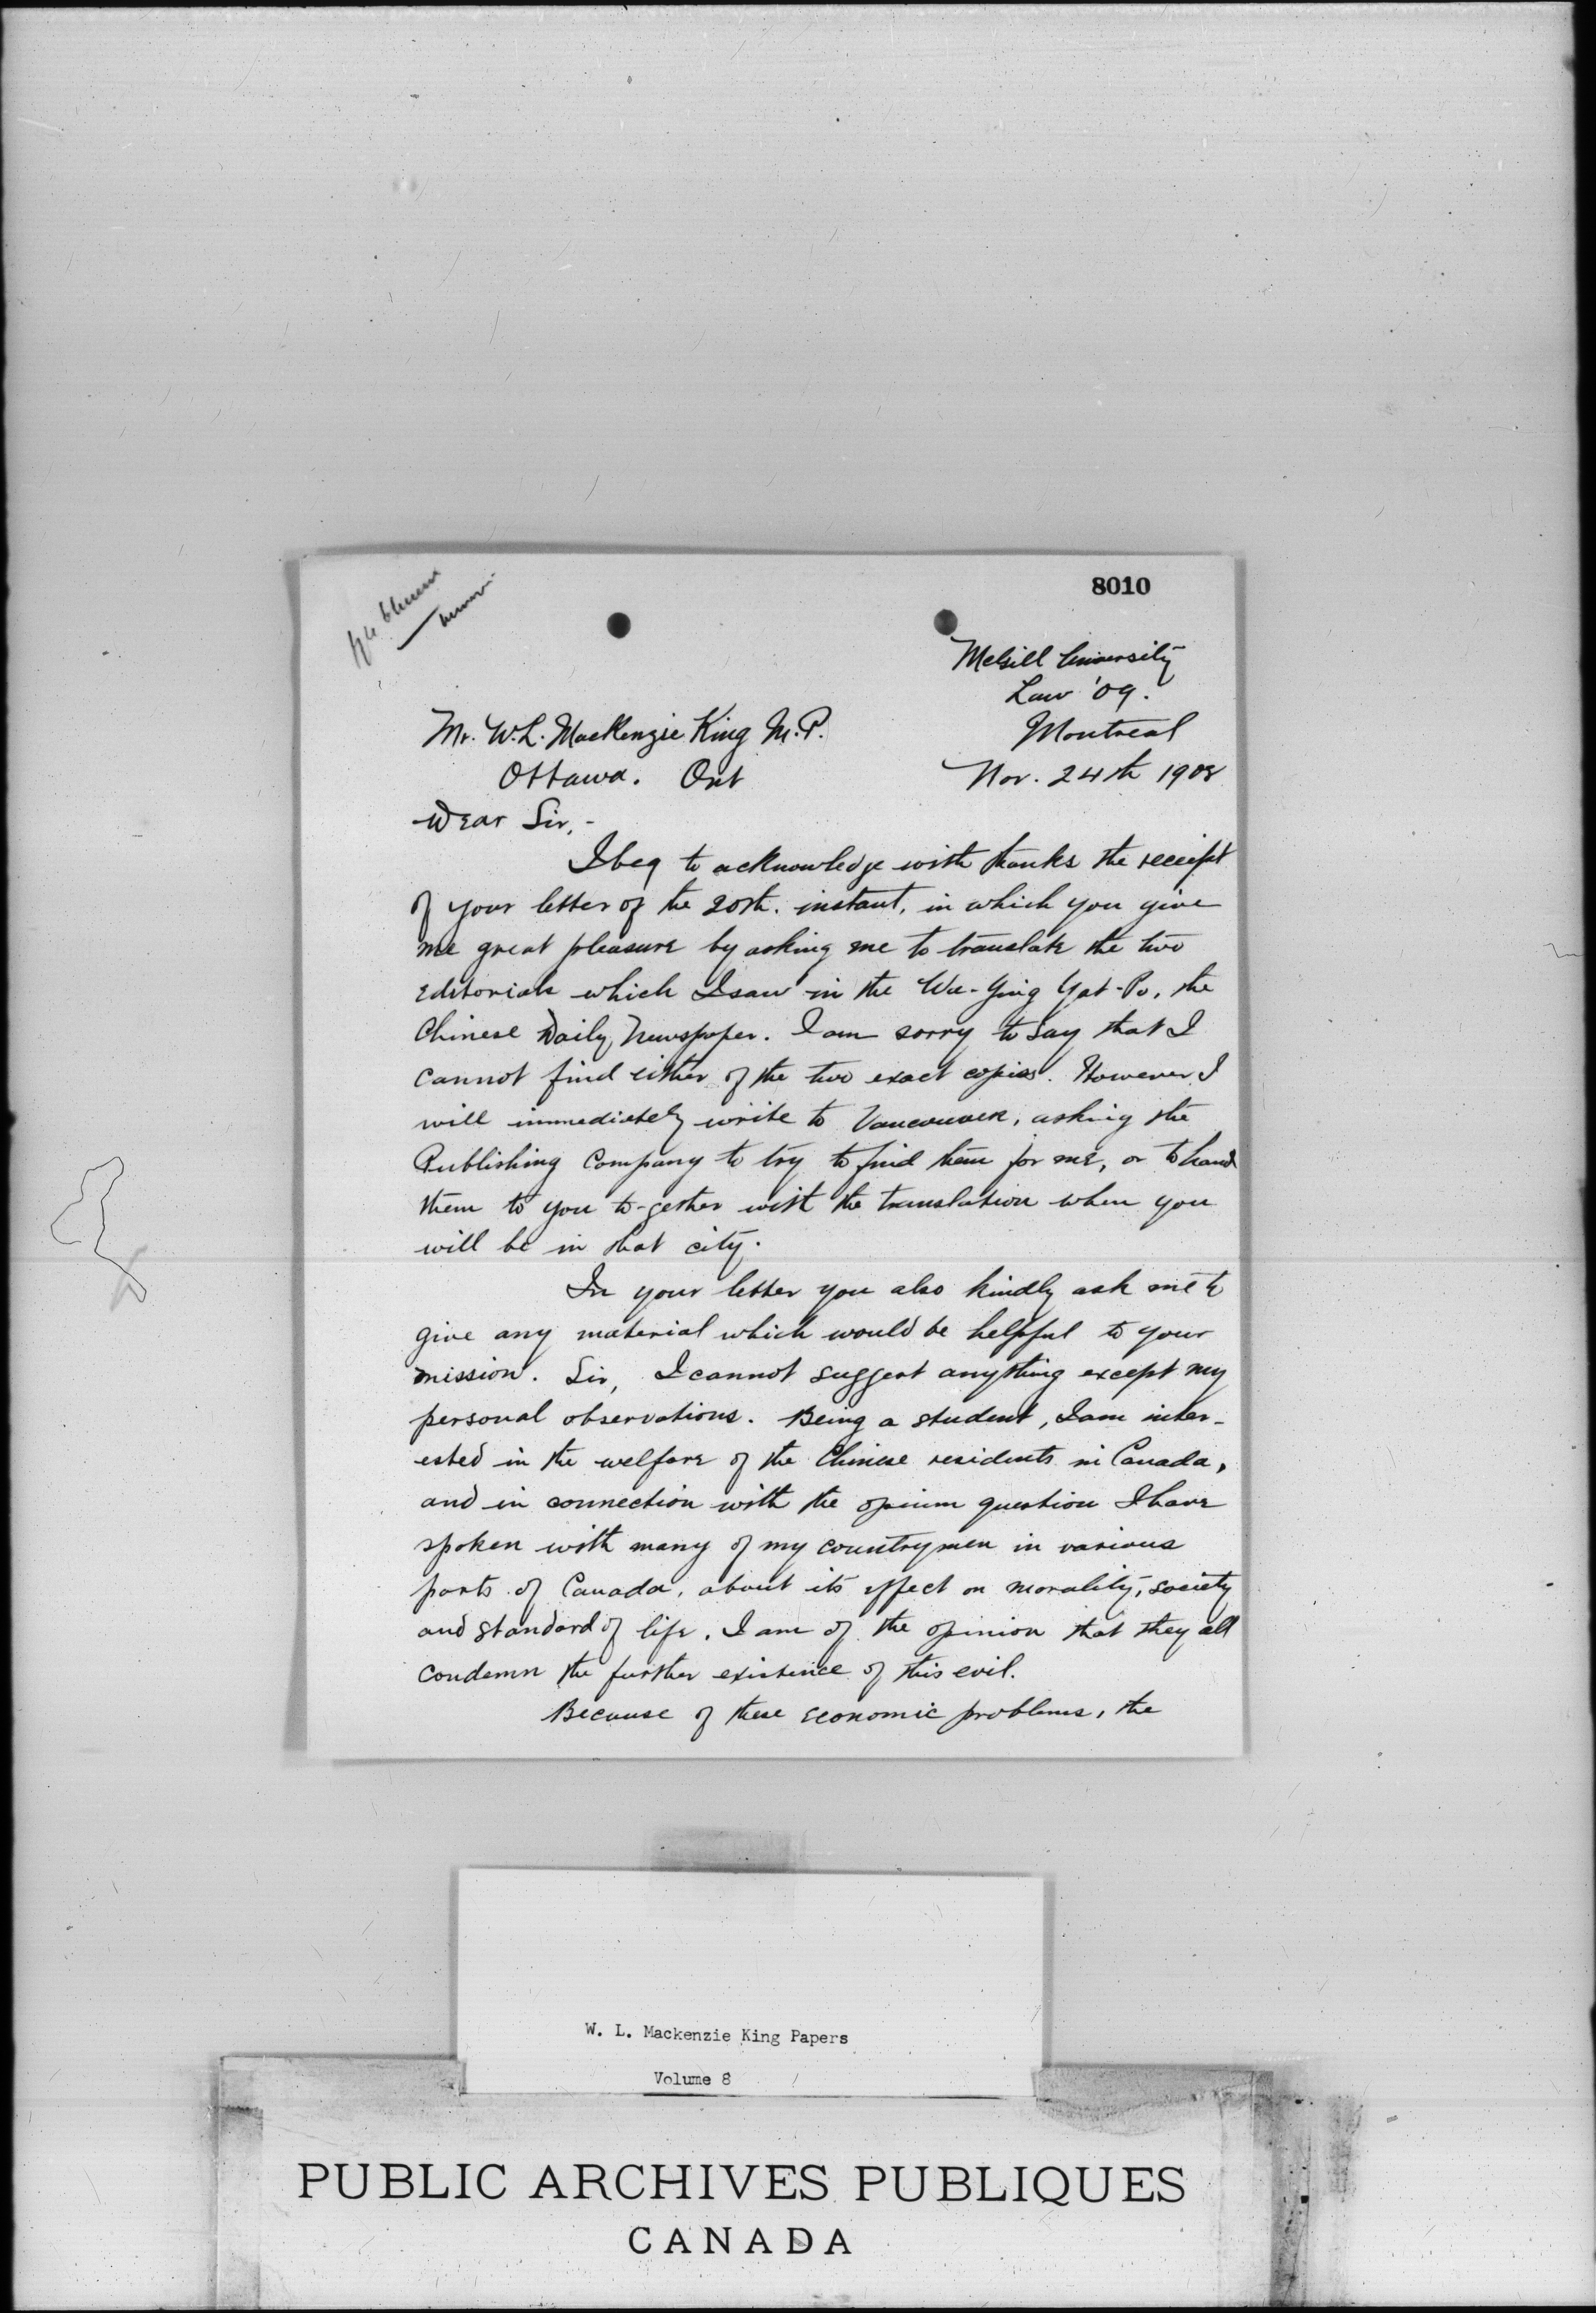 8010
McGill University
Law '09.
Mr. W.L. MacKenzie King M.P.
Montreal
Ottawa. Ont
Nov. 24th 1908
Dear Sir,-
I beg to acknowledge with thanks the receipt
of your letter of the 20th. instant, in which you give
me great pleasure by asking me to translate the two
editorials which I saw in the Wa-Ying Yat-Po, the
Chinese Daily Newspaper. I am sorry to say that I
cannot find either of the two exact copies. However I
will immediately write to Vancouver, asking the
Publishing Company to try to find them for me, or to hand
them to you to-gether with the translation when you
will be in that city.
In your letter you also kindly ask me to
give any material which would be helpful to your
mission. Sir, I cannot suggest anything except my
personal observations. Being a student, I am inter-
ested in the welfare of the Chinese residents in Canada,
and in connection with the opium question I have
spoken with many of my countrymen in various
parts of Canada, about its effect on morality, society
and standard of life. I am of the opinion that they all
condemn the further existence of this evil.
Because of these economic problems, the
W. L. Mackenzie King Papers
Volume 8
PUBLIC ARCHIVES PUBLIQUES
CANADA